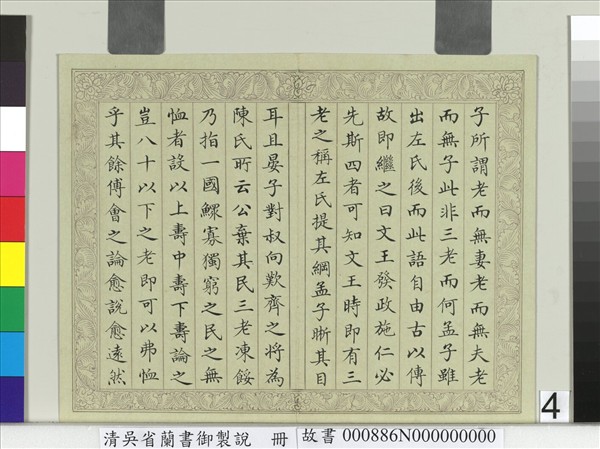 子所謂老而無妻老而無夫老
而無子此非三老而何孟子雖
出左氏後而此語自由古以傳
故即繼之曰文王發政施仁必
先斯四者可知文王時即有三
老之稱左氏提其綱孟子晰其目
耳且晏子對叔向歎齊之將為
陳氏所云公棄其民三老凍餒
乃指一國鰥寡獨窮之民之無
恤者設以上壽中壽下壽論之
豈八十以下之老即可以弗恤
乎其餘傅會之論愈說愈遠然
4
清吳省蘭書御製說 冊
故書 000886N000000000